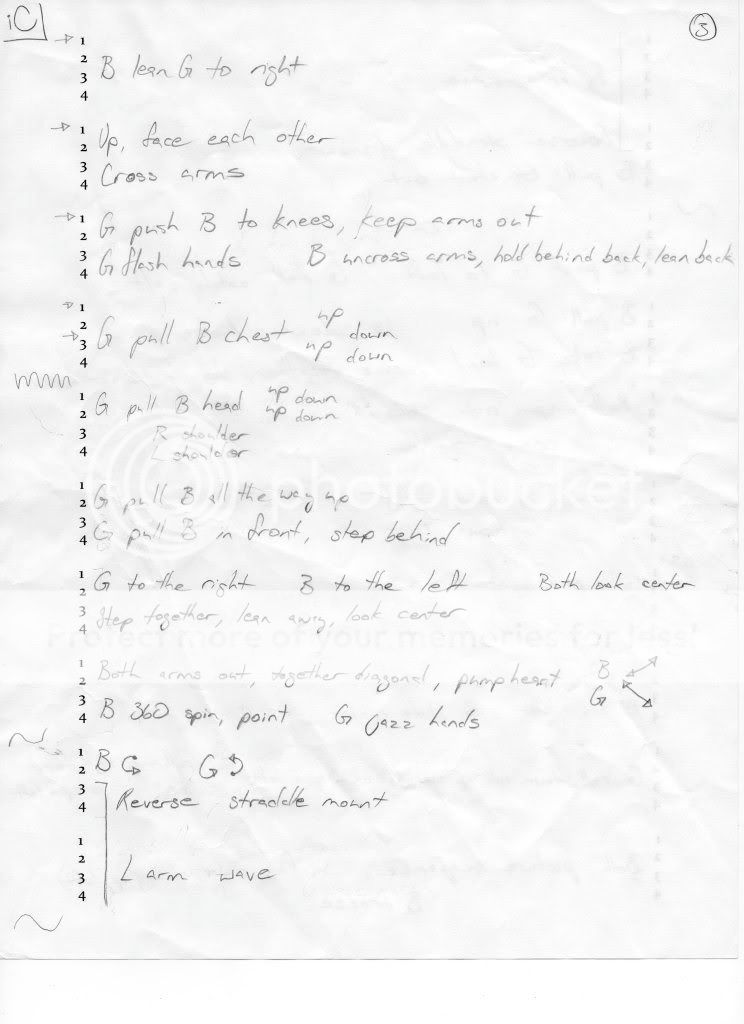 iC
3
1
2 B lean G to right
3
4
1 Up, face each other
2
3 Cross arms
4
1 G push B to knees, keep arms out
2
3 G flash hands B uncross arms, hold behind back, lean back
4
1
2 G pull B chest up down
3 up down
4
1 G pull B head up down
2 up down
3 R shoulder
4 L shoulder
1 G pull B all the way up
2
3 G pull B in front, step behind
4
1 G to the right B to the left Both look center
2
3 Step together, lean away, look center
4
1 Both arms out, together diagonal, pump heart B
2 G
3 B 360 spin, point G jazz hands
4
1
2 B G
3 Reverse straddle mount
4
1
2
3 L arm wave
4
photobucket
Protect more of your memories for less!